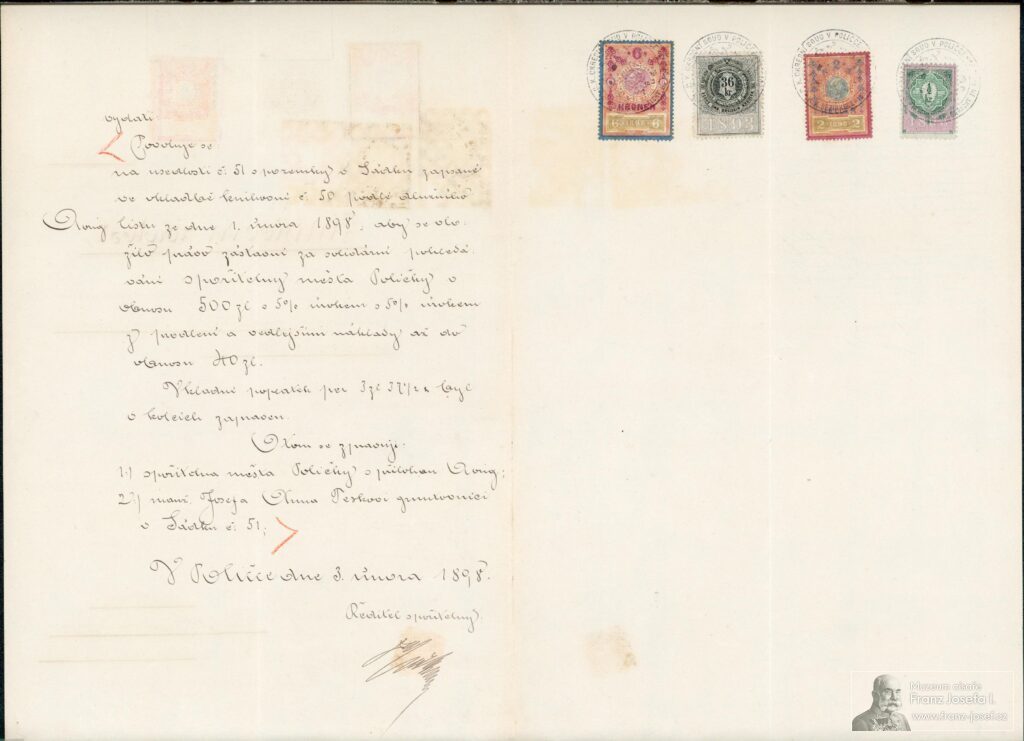 vydati:
Povoluje se
na usedlosti č. 51 s pozemky v Sádku zapsané
ve vkladbě knihovní č. 50 podlé dlužního
Aorig listu ze dne 1. února 1898. aby se vlo-
žilo právo zástavní za solidární pohledá-
vání spořitelny města Poličky v
obnosu 500 zl s 5% úrokem s 5% úrokem
z prodlení a vedlejšími náklady až do
obnosu 40 zl.
Vkladní poplatek per 3 zl 37½ k byl
v kolcích zapraven.
O tom se zpravují:
1.) spořitelna města Poličky s přílohou Aorig;
2.) manž. Josefa Anna Peškovi gruntovníci
v Sádku č. 51;
V Poličce dne 3. února 1898.
Ředitel spořitelny.
6
KRONEN
6 6
36
kr
1898
2
2 2
1
Muzeum císaře
Franz Josefa I.
www.franz-josef.cz